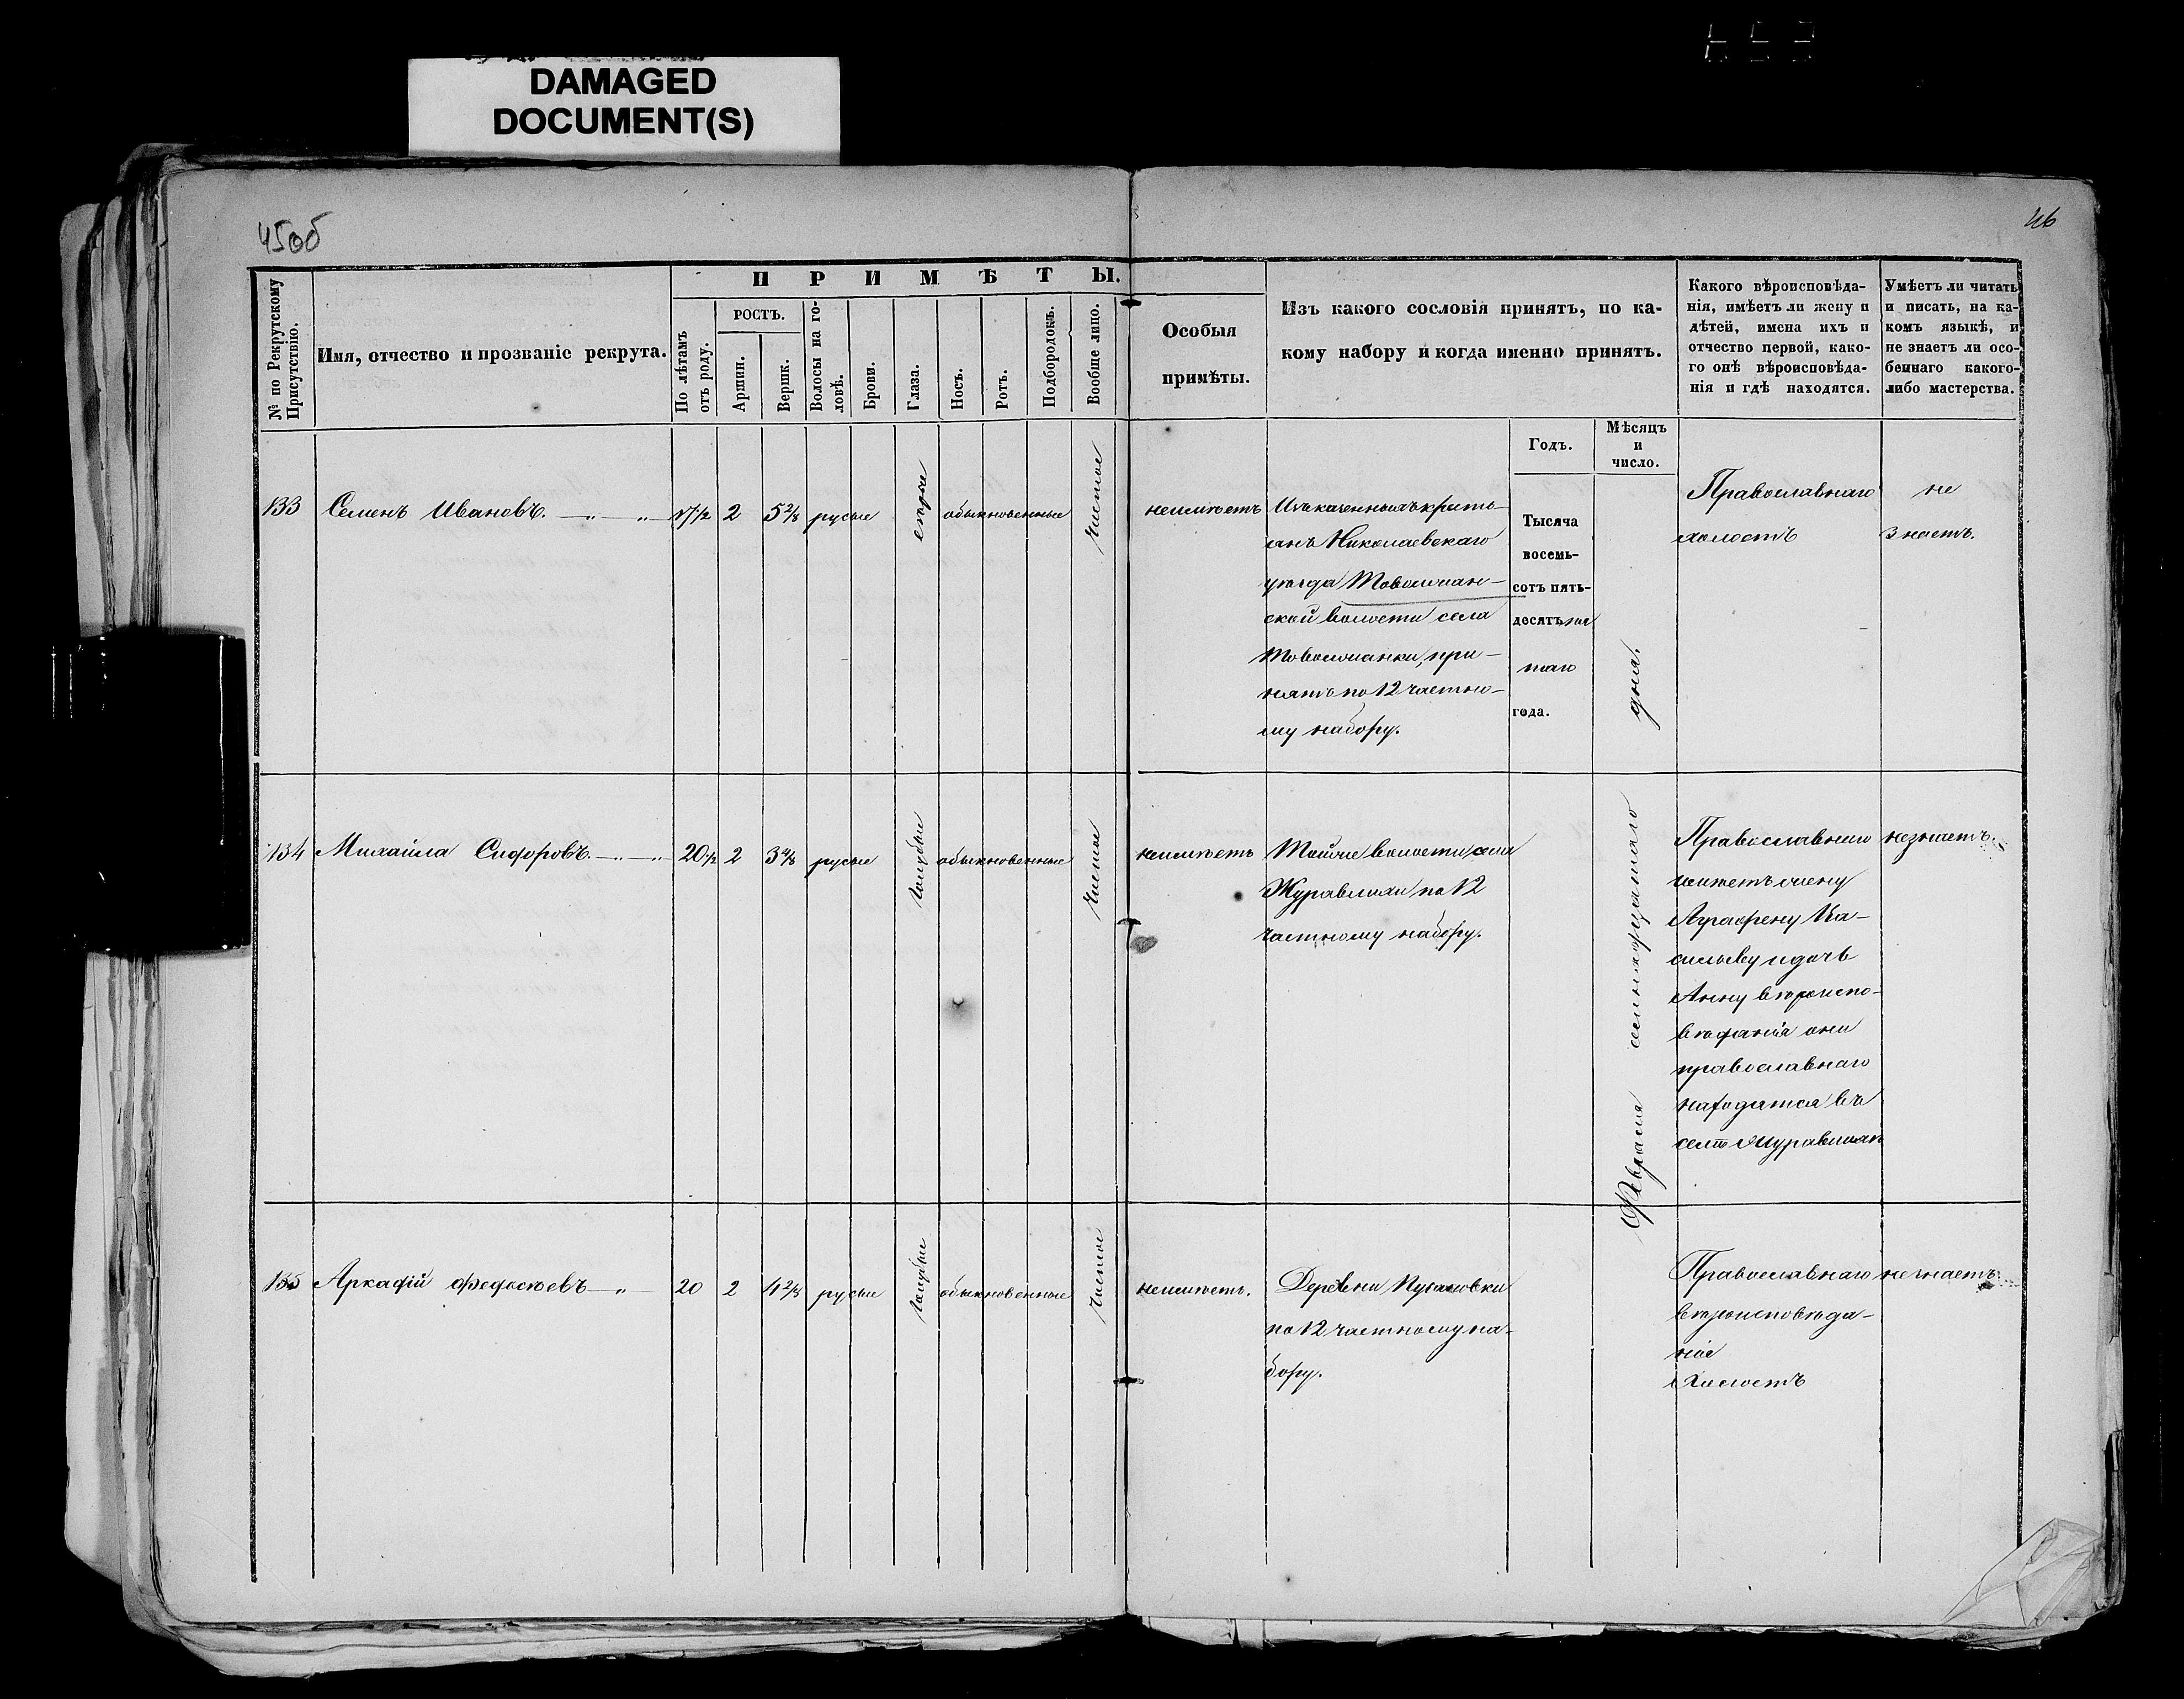 DAMAGED
DOCUMENT(S)
45об
46
№ по Рекрутскому Присутствію.
Имя, отчество и прозваніе рекрута.
ПРИМѢТЫ.
По лѣтамъ отъ роду.
РОСТЪ.
Аршин.
Вершк.
Волосы на головѣ.
Брови.
Глаза.
Носъ.
Ротъ.
Подбородокъ.
Вообще лицо.
Особыя
примѣты.
Изъ какого сословія принятъ, по ка-
кому набору и когда именно принятъ.
Какого вѣроисповѣда-
нія, имѣетъ ли жену и
дѣтей, имена ихъ и
отчество первой, како-
го онѣ вѣроисповѣда-
нія и гдѣ находятся.
Умѣетъ ли читать
и писать, на ка-
комъ языкѣ, и
не знаетъ ли осо-
беннаго какого-
либо мастерства.
Годъ.
Мѣсяцъ
и
число.
133 Семенъ Ивановъ. 2 5 2/8 русые сѣрые обыкновенные чистое неимѣетъ
Изъ казенныхъ кресть-
янъ Николаевскаго
уѣзда
ской волости села
при-
нятъ по 12 частно-
му набору.
Тысяча
восемь-
сотъ пять-
десятъ пя
таго
года.
Февраля семнадцатаго дня.
Православнаго
холостъ
не
знаетъ.
134 Михайла Сидоровъ. 20 1/2 2 3 4/8 русые голубые обыкновенные чистое неимѣетъ
Тойже волости села
Журавлихи по 12
частному набору.
Православнаго
имѣетъ жену
Аграфену Ва-
сильеву и дочь
Анну вѣроиспо-
вѣданія они
православнаго
находятся въ
селѣ Журавлихѣ
незнаетъ.
135 Аркадій Федосѣевъ 20 2 4 2/8 русые голубые обыкновенные чистое неимѣетъ.
Деревни
по 12 частному на-
бору.
Православнаго
вѣроисповѣда-
нія
Холостъ
незнаетъ.